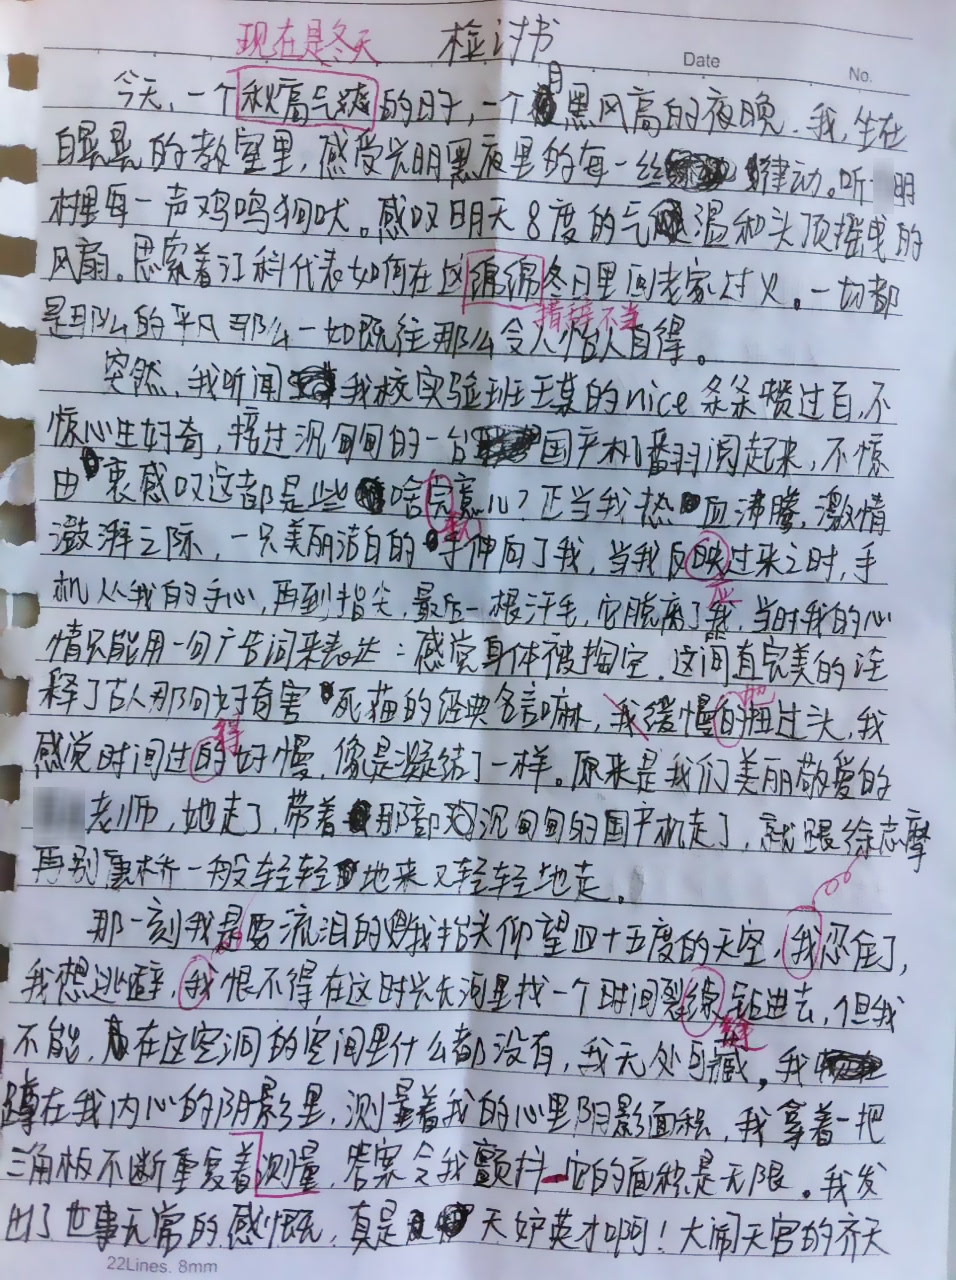 现在是冬天 检讨书
Date
No.
今天,一个秋高气爽的日子,一个月黑风高的夜晚.我,坐在
自习的教室里,感受光明黑夜里的每一丝律动。听 明
村里每一声鸡鸣狗吠。感叹明天8度的气温和头顶摇曳的
风扇。思索着江科代表如何在这绵绵冬日里回老家过火。一切都
措辞不当
是那么的平凡那么一如既往那么令人怡人自得。
突然,我听闻我校实验班王某的nice条条赞过百,不
惊心生好奇,接过沉甸甸的一台国产机翻阅起来,不惊
由衷感叹这都是些啥完意儿?正当我热血沸腾,激情
玩
澎湃之际,一只美丽洁白的手伸向了我,当我反映过来之时,手
应
机从我的手心,再到指尖,最后一根汗毛,它脱离了我,当时我的心
情只能用一句广告词来表达:感觉身体被掏空.这简直完美的诠
释了古人那句好奇害死猫的经典名言嘛,我缓慢的扭过头,我
地
感觉时间过的好慢,像是凝结了一样。原来是我们美丽敬爱的
得
老师,她走了,带着那部沉甸甸的国产机走了,就跟徐志摩
再别康桥一般轻轻地来又轻轻地走。
那一刻我是要流泪的 我抬头仰望四十五度的天空,我忍住了,
的
我想逃避,我恨不得在这时光长河里找一个时间裂缐钻进去,但我
缝
不能,在这空洞的空间里什么都没有,我无处可藏。我
蹲在我内心的阴影里,测量着我的心里阴影面积,我拿着一把
三角板不断重复着测量,答案令我颤抖 它的面积是无限。我发
出了世事无常的感慨,真是天妒英才啊!大闹天宫的齐天
22Lines. 8mm